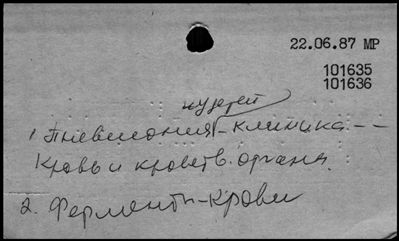 22.06.87 MP
101635
101636
у детей
1. Пневмония - клиника --
Кровь и кроветв. органы.
2. Ферменты - крови